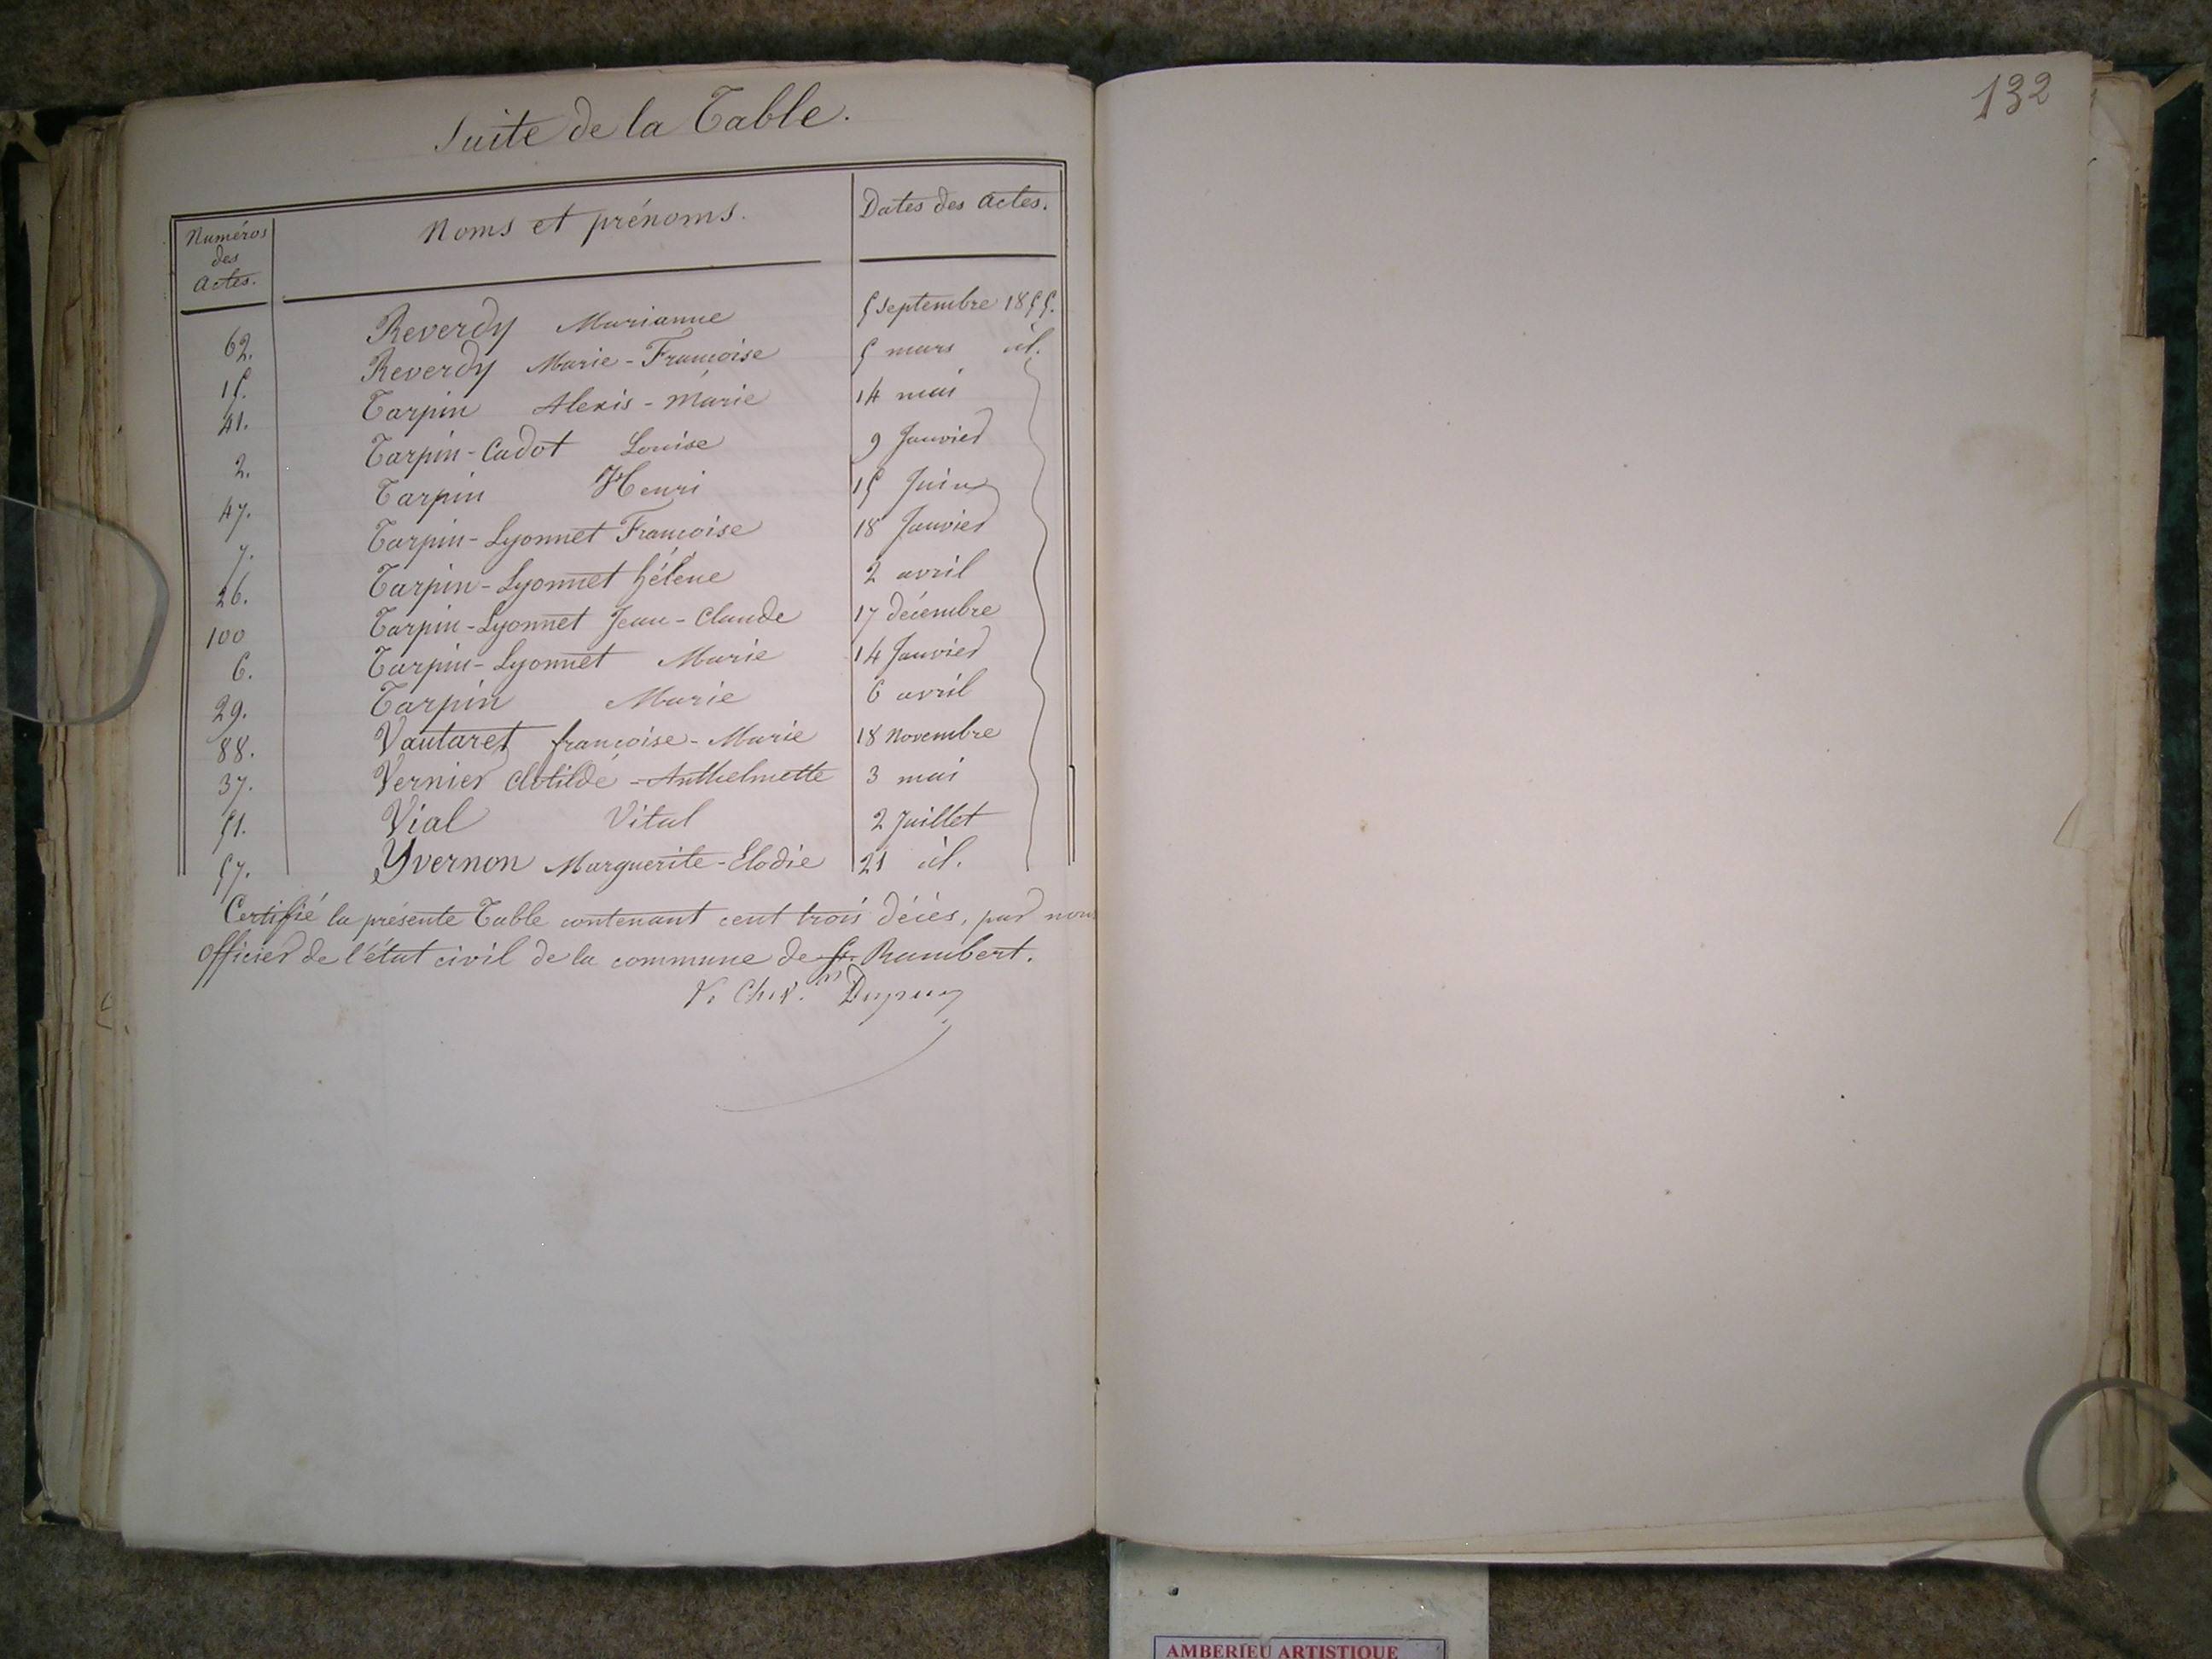 Suite de la Table.
Numéros des Actes. Noms et prénoms. Dates des Actes.
62. Reverdy Marianne 5 Septembre 1855.
15. Reverdy Marie-Françoise 5 mars id.
41. Tarpin Alexis-Marie 14 mai
2. Tarpin-Cadot Louise 9 Janvier
47. Tarpin Henri 15 Juin
7. Tarpin-Lyonnet Françoise 18 Janvier
26. Tarpin-Lyonnet hélène 2 avril
100 Tarpin-Lyonnet Jean-Claude 17 décembre
6. Tarpin-Lyonnet Marie 14 Janvier
29. Tarpin Marie 6 avril
88. Vautaret françoise-Marie 18 Novembre
37. Vernier Clotilde-Anthelmette 3 mai
51. Vial Vital 2 Juillet
57. Yvernon Marguerite-Elodie 21 id.
Certifié la présente Table contenant cent trois décès, par nous
Officier de l'état civil de la commune de St. Rambert.
Dupuy
132
AMBERIEU ARTISTIQUE